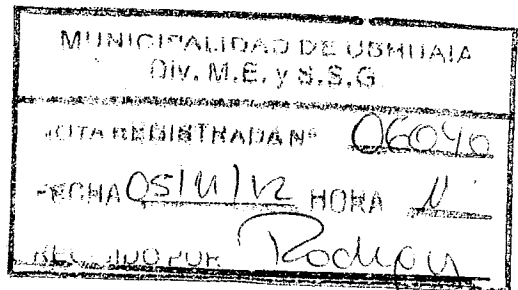 MUNICIPALIDAD DE USHUAIA
DIV. M.E. y S.S.G.
NOTA REGISTRADA Nº 06040
FECHA 05/11/12 HORA 11
RECIBIDO POR